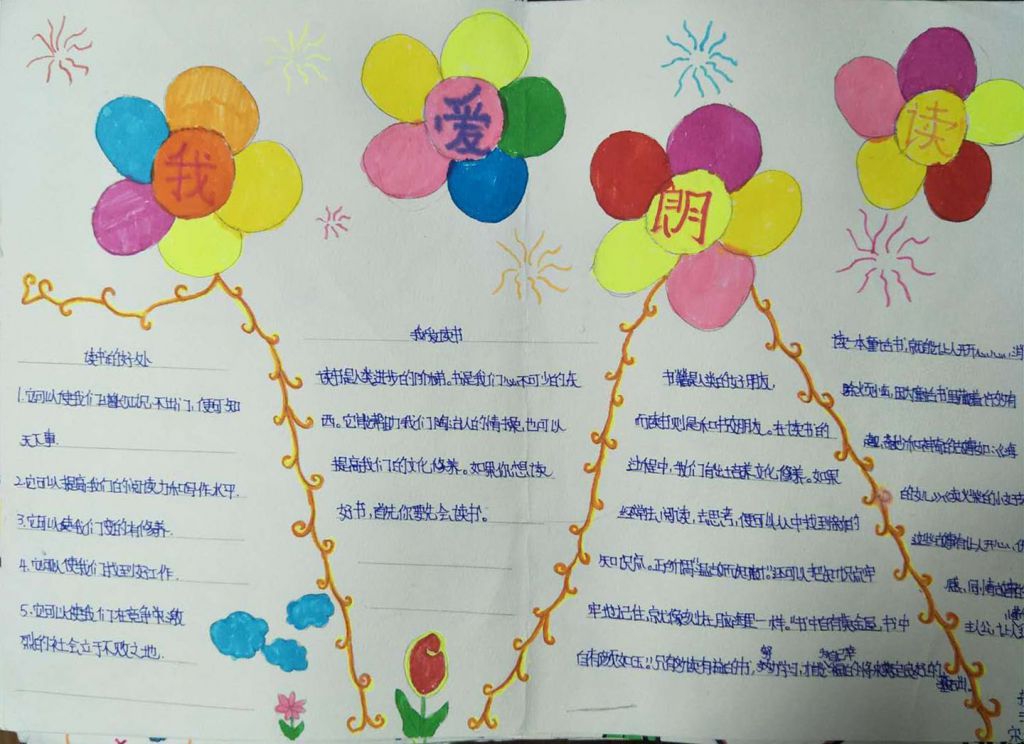 我爱朗读
读书的好处
1.它可以使我们增长知识,不出门,便可知
天下事.
2.它可以提高我们的阅读力和写作水平.
3.它可以使我们变的有修养.
4.它可以使我们找到好工作.
5.它可以使我们在竞争激
烈的社会立于不败之地.
我爱读书
读书是人类进步的阶梯。书是我们必不可少的东
西。它能帮助我们陶冶人的情操,也可以
提高我们的文化修养。如果你想读
好书,首先你要先会读书。
书籍是人类的好朋友,
而读书则是和书做朋友。在读书的
过程中,我们自出培养文化修养。如果
经常去阅读,去思考,便可以从中找到
知识点。正所谓“温故而知新”。还可以把知识点牢
牢地记住,就像刻在脑海里一样。“书中自有黄金屋,书中
自有颜如玉”只有多读有益的书,努力学习,才能
读一本童话书,就能让人开开心心,消
除大
趣,奇妙和神奇的故事如:《海
的女儿》《卖火柴的小女孩
这些故事有让人开心,
感,同情故事的
主人公,让人